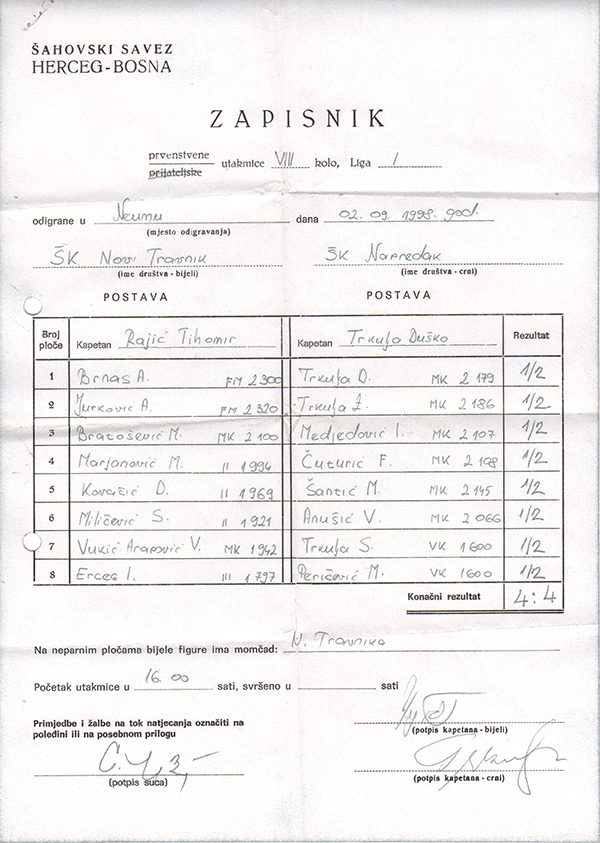 ŠAHOVSKI SAVEZ
HERCEG-BOSNA
ZAPISNIK
prvenstvene
prijateljske utakmice VIII kolo, Liga I
odigrane u Neumu dana 02. 09. 1998. god.
(mjesto odigravanja)
ŠK Novi Travnik ŠK Napredak
(ime društva - bijeli) (ime društva - crni)
POSTAVA POSTAVA
Broj ploče Kapetan Rajić Tihomir Kapetan Trkulja Duško Rezultat
1 Brnas A. FM 2300 Trkulja D. MK 2179 1/2
2 Jurković A. FM 2320 Trkulja Ž. MK 2186 1/2
3 Bratošević M. MK 2100 Medjedović I. MK 2107 1/2
4 Marjanović M. II 1994 Čuturić F. MK 2198 1/2
5 Kovačić D. II 1969 Šantić M. MK 2145 1/2
6 Miličević S. II 1921 Anušić V. MK 2066 1/2
7 Vukić Arapović V. MK 1942 Trkulja S. VK 1600 1/2
8 Erceg I. III 1797 Peričević M. VK 1600 1/2
Konačni rezultat 4:4
Na neparnim pločama bijele figure ima momčad: N. Travnika
Početak utakmice u 16.00 sati, svršeno u sati
Primjedbe i žalbe na tok natjecanja označiti na
poleđini ili na posebnom prilogu
(potpis kapetana - bijeli)
(potpis suca)
(potpis kapetana - crni)